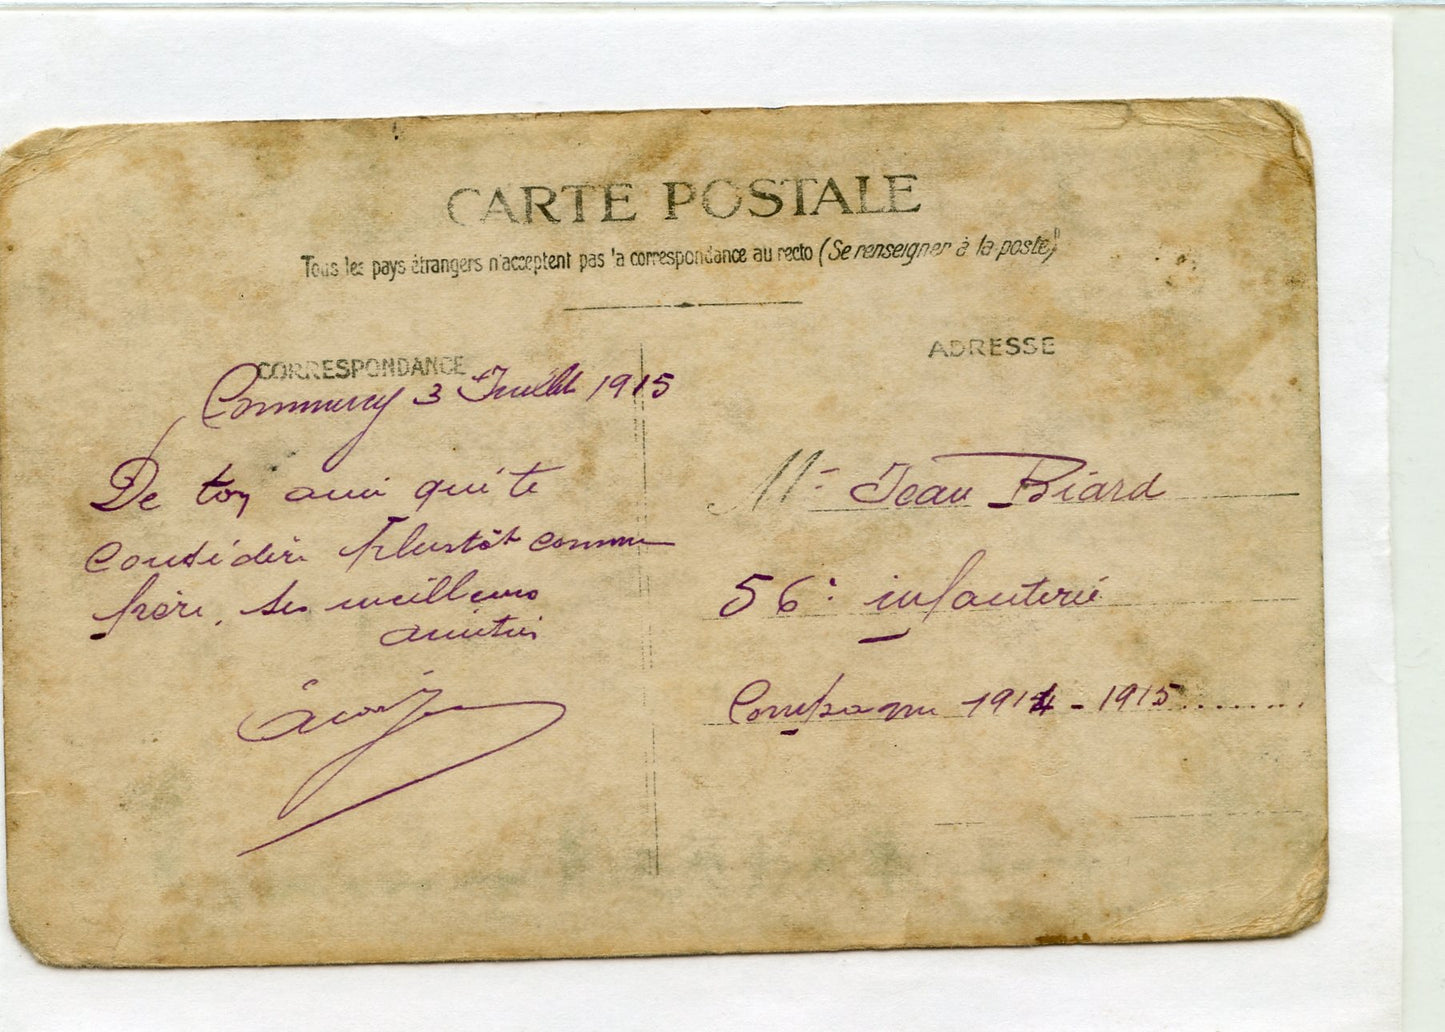 CARTE POSTALE
Tous les pays étrangers n'acceptent pas la correspondance au recto (Se renseigner à la poste)
CORRESPONDANCE
ADRESSE
Commercy 3 Juillet 1915
De ton ami qui te
considère plustôt comme
frère, ses meilleurs
amitiés
Mr Jean Biard
56e infanterie
Compagnie 1914-1915